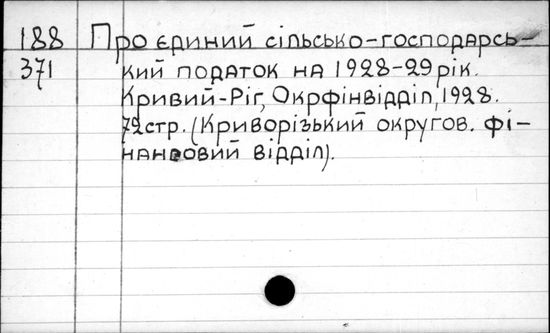 188 Про єдиний сільсько-господарсь-
371 кий податок на 1928-29 рік.
Кривий-Ріг, Окрфінвідділ, 1928.
72 стр. (Криворізький округов. фі-
нансовий відділ).